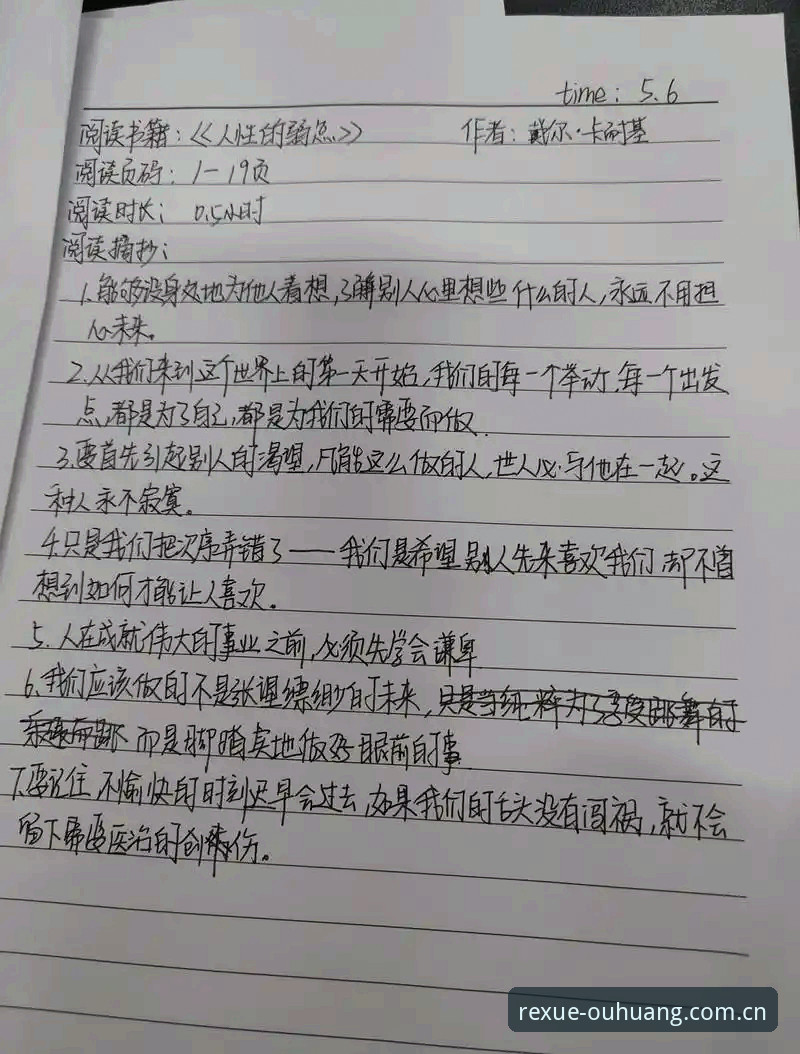 time：5.6
阅读书籍：《人性的弱点》 作者：戴尔·卡耐基
阅读页码：1－19页
阅读时长：0.5小时
阅读摘抄：
1.能够设身处地为他人着想，了解别人心里想些什么的人，永远不用担
心未来。
2.从我们来到这个世界上的第一天开始，我们的每一个举动，每一个出发
点，都是为了自己，都是为我们的需要而做.
3.要首先引起别人的渴望，凡能这么做的人，世人必与他在一起。这
种人永不寂寞。
4.只是我们把次序弄错了——我们是希望别人先来喜欢我们，却不曾
想到如何才能让人喜欢。
5.人在成就伟大的事业之前，必须先学会谦卑.
6.我们应该做的不是张望缥缈的未来，只是当纯粹为了
而是脚踏实地做好眼前的事.
7.要记住，不愉快的时刻迟早会过去，如果我们的舌头没有闯祸，就不会
留下需要医治的创伤。
rexue-ouhuang.com.cn